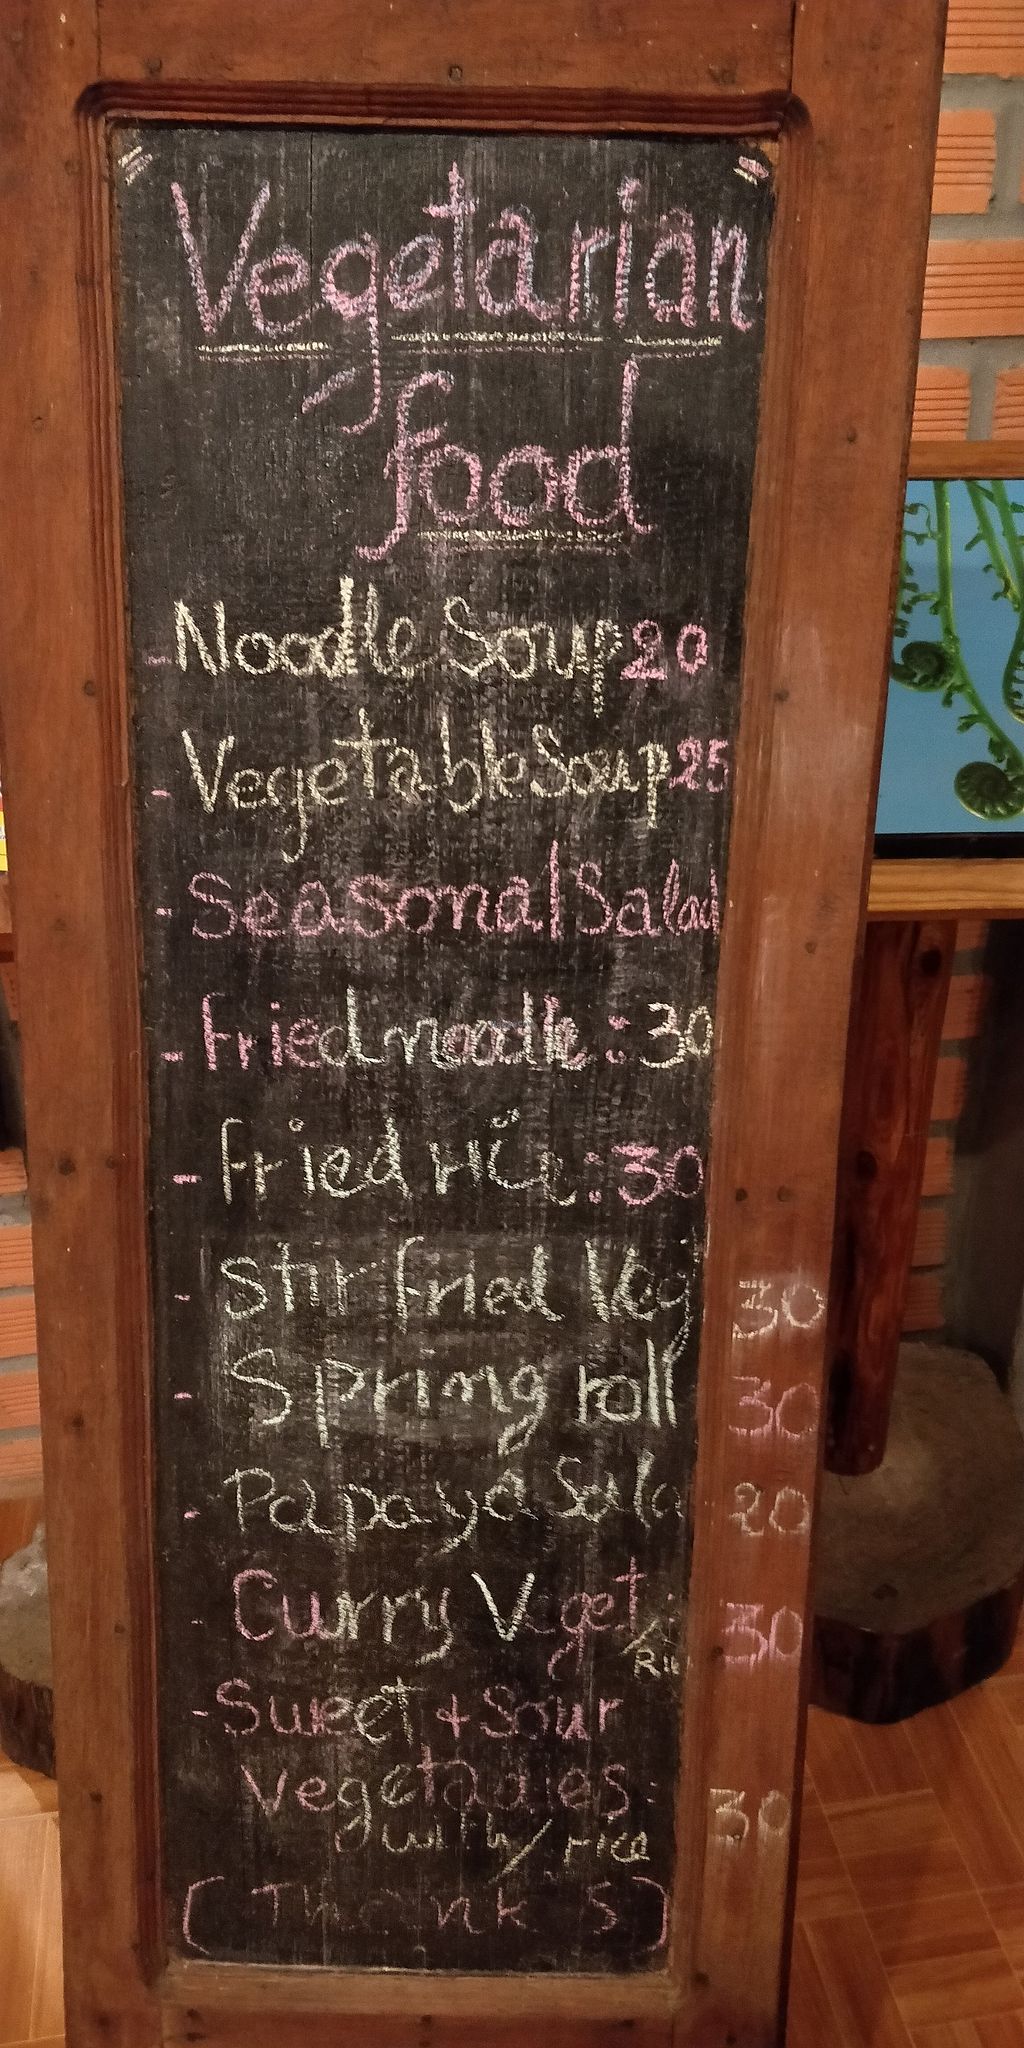 Vegetarian
food
- Noodle Soup 20
- Vegetable Soup 25
- Seasonal Salad
- Fried noodle : 30
- Fried rice : 30
- Stir fried Veg 30
- Spring roll 30
- Papaya Sala 20
- Curry Veget : 30
Ric
- Sweet + Sour
Vegetables : 30
with / rice
( Thank S )